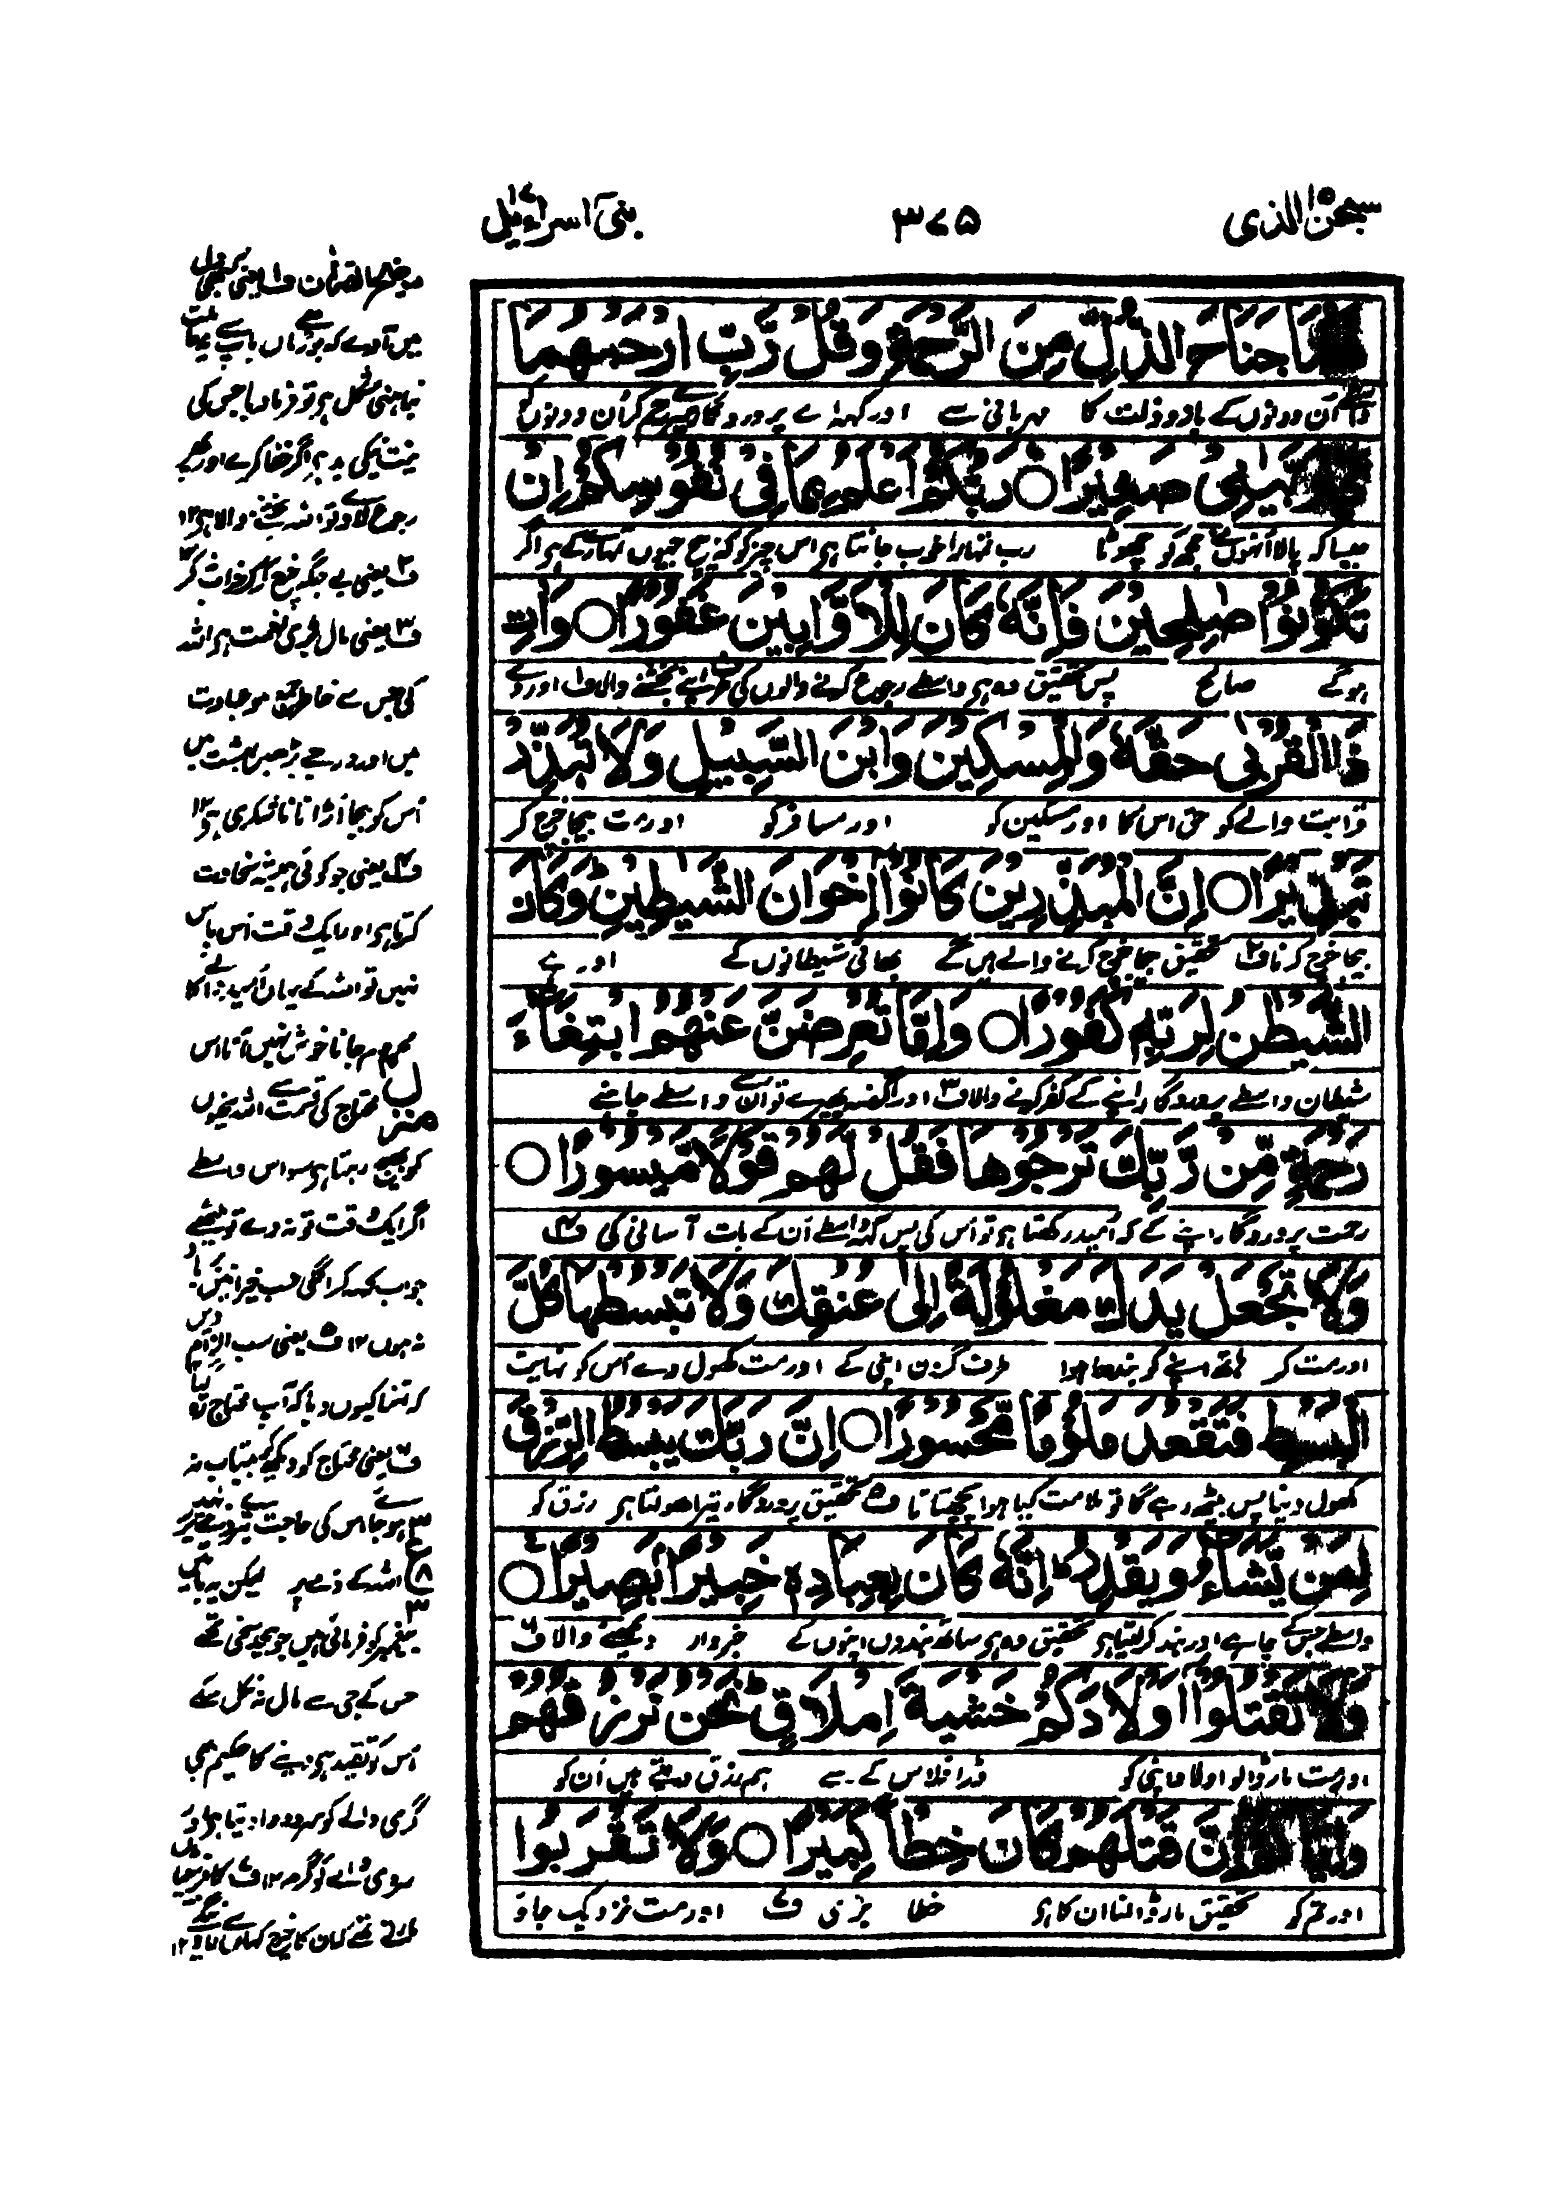 سبحٰن الذی ۱۵
۳۷۵
بنیٓ اسراءیل ۱۷
جَنَاحَ الذُّلِّ مِنَ الرَّحْمَةِ وَقُلْ رَّبِّ ارْحَمْهُمَا
اُن دونوں کے بازو ذلت کا مہربانی سے اور کہہ اے پروردگار میرے رحم کر اُن دونوں کو
صَغِيْرًا ○ رَبُّكُمْ اَعْلَمُ بِمَا فِيْ نُفُوْسِكُمْ اِنْ
جیسا کہ پالا اُنہوں نے مجھ کو چھوٹا رب تمہارا خوب جانتا ہے اس چیز کو کہ بیچ جیوں تمہارے کے ہے اگر
تَكُوْنُوْا صٰلِحِيْنَ فَاِنَّهٗ كَانَ لِلْاَوَّابِيْنَ غَفُوْرًا ○ وَاٰتِ
ہو گے صالح پس تحقیق وہ ہے واسطے رجوع کرنے والوں کی طرف اپنے بخشنے والا ف۱ اور دے
ذَا الْقُرْبٰى حَقَّهٗ وَالْمِسْكِيْنَ وَابْنَ السَّبِيْلِ وَلَا تُبَذِّرْ
قرابت والے کو حق اس کا اور مسکین کو اور مسافر کو اور مت بیجا خرچ کر
تَبْذِيْرًا ○ اِنَّ الْمُبَذِّرِيْنَ كَانُوْٓا اِخْوَانَ الشَّيٰطِيْنِ ؕ وَكَانَ
بیجا خرچ کرنا ف۲ تحقیق بیجا خرچ کرنے والے ہیں گے بھائی شیطانوں کے اور ہے
الشَّيْطٰنُ لِرَبِّهٖ كَفُوْرًا ○ وَاِمَّا تُعْرِضَنَّ عَنْهُمُ ابْتِغَآءَ
شیطان واسطے پروردگار اپنے کے کفر کرنے والا ف۳ اور اگر منہ پھیرے تو اُن سے واسطے چاہنے
رَحْمَةٍ مِّنْ رَّبِّكَ تَرْجُوْهَا فَقُلْ لَّهُمْ قَوْلًا مَّيْسُوْرًا ○
رحمت پروردگار اپنے کے کہ اُمید رکھتا ہے تو اُس کی پس کہہ واسطے اُن کے بات آسانی کی ف۴
وَلَا تَجْعَلْ يَدَكَ مَغْلُوْلَةً اِلٰى عُنُقِكَ وَلَا تَبْسُطْهَا كُلَّ
اور مت کر ہاتھ اپنے کو بندھا ہوا طرف گردن اپنی کے اور مت کھول دے اُس کو نہایت
الْبَسْطِ فَتَقْعُدَ مَلُوْمًا مَّحْسُوْرًا ○ اِنَّ رَبَّكَ يَبْسُطُ الرِّزْقَ
کھول دینا پس بیٹھ رہے گا تو ملامت کیا ہوا پچھتاتا ف۵ تحقیق پروردگار تیرا کھولتا ہے رزق کو
لِمَنْ يَّشَآءُ وَيَقْدِرُ ؕ اِنَّهٗ كَانَ بِعِبَادِهٖ خَبِيْرًۢا بَصِيْرًا ○
واسطے جس کے چاہے اور بند کر لیتا ہے تحقیق وہ ہے ساتھ بندوں اپنوں کے خبردار دیکھنے والا ف۶
وَلَا تَقْتُلُوْٓا اَوْلَادَكُمْ خَشْيَةَ اِمْلَاقٍ ؕ نَحْنُ نَرْزُقُهُمْ
اور مت مار ڈالو اولاد اپنی کو ڈر افلاس کے سے ہم رزق دیتے ہیں اُن کو
وَاِيَّاكُمْ ؕ اِنَّ قَتْلَهُمْ كَانَ خِطْاً كَبِيْرًا ○ وَلَا تَقْرَبُوا
اور تم کو تحقیق مار ڈالنا ان کا ہے خطا بڑی ف۷ اور مت نزدیک جاؤ
موضح القرآن ف۱ یعنی جی
میں آوے کہ بوڑھے ماں باپ سے
نباہنی مشکل ہے تو فرما دیا جس کی
نیت نیکی پر ہے اگر خفا کرے اور پھر
رجوع لاوے تو اللہ بخشنے والا ہے ۱۲
ف۲ یعنی بے جگہ خرچ کر کر خراب نہ کر
ف۳ یعنی مال بڑی نعمت ہے اللہ
کی جس سے خاطر جمع ہو عبادت
میں اور درجے بڑھیں بہشت میں
اُس کو بیجا اُڑانا ناشکری ہے ۱۲
ف۴ یعنی جو کوئی ہمیشہ سخاوت
کرتا ہے اور ایک وقت اُس پاس
نہیں تو اللہ کے یہاں اُمید والے کا
محروم جانا خوش نہیں آتا اس
منزل
محتاج کی قسمت سے اللہ سخیوں
کو بھیج رہتا ہے سو اس واسطے
اگر ایک وقت تو نہ دے تو میٹھے
نہ ہوں ۱۲ ف۵ یعنی سب الزام دیں
کہ اتنا کیوں دیا کہ آپ محتاج رہ گیا
ف۶ یعنی محتاج کو دیکھ کر بیتاب نہ
ہو جا اس کی حاجت
اللہ کے ذمے ہے لیکن یہ باتیں
پیغمبر کو فرمائی ہیں جو بیحد سخی تھے
جس کے جی سے مال نہ نکل سکے
اُس کو تقید ہے دینے کا حکیم بھی
گرمی والے کو سرد دوا دیتا ہے اور
سردی والے کو گرم ۱۲ ف۷ کافر بیٹیاں
مارتے تھے کہ ان کا خرچ کہاں سے لاویں گے ۱۲